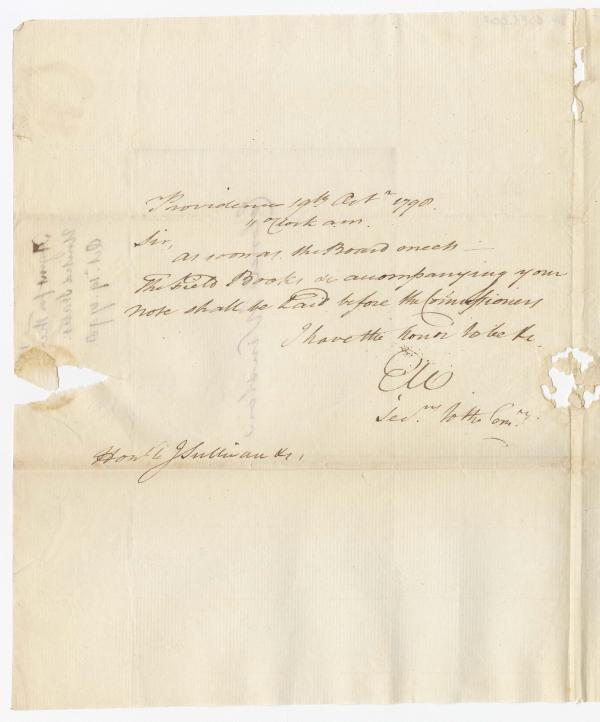 Providence 19th Octr 1798.
11 oClock a.m.
Sir,
as soon as the Board meets —
The Field Books &c accompanying your
note shall be Laid before the Comissioners
I have the honor to be &c.
Secy to the Comrs.
Honble J Sullivan &c,